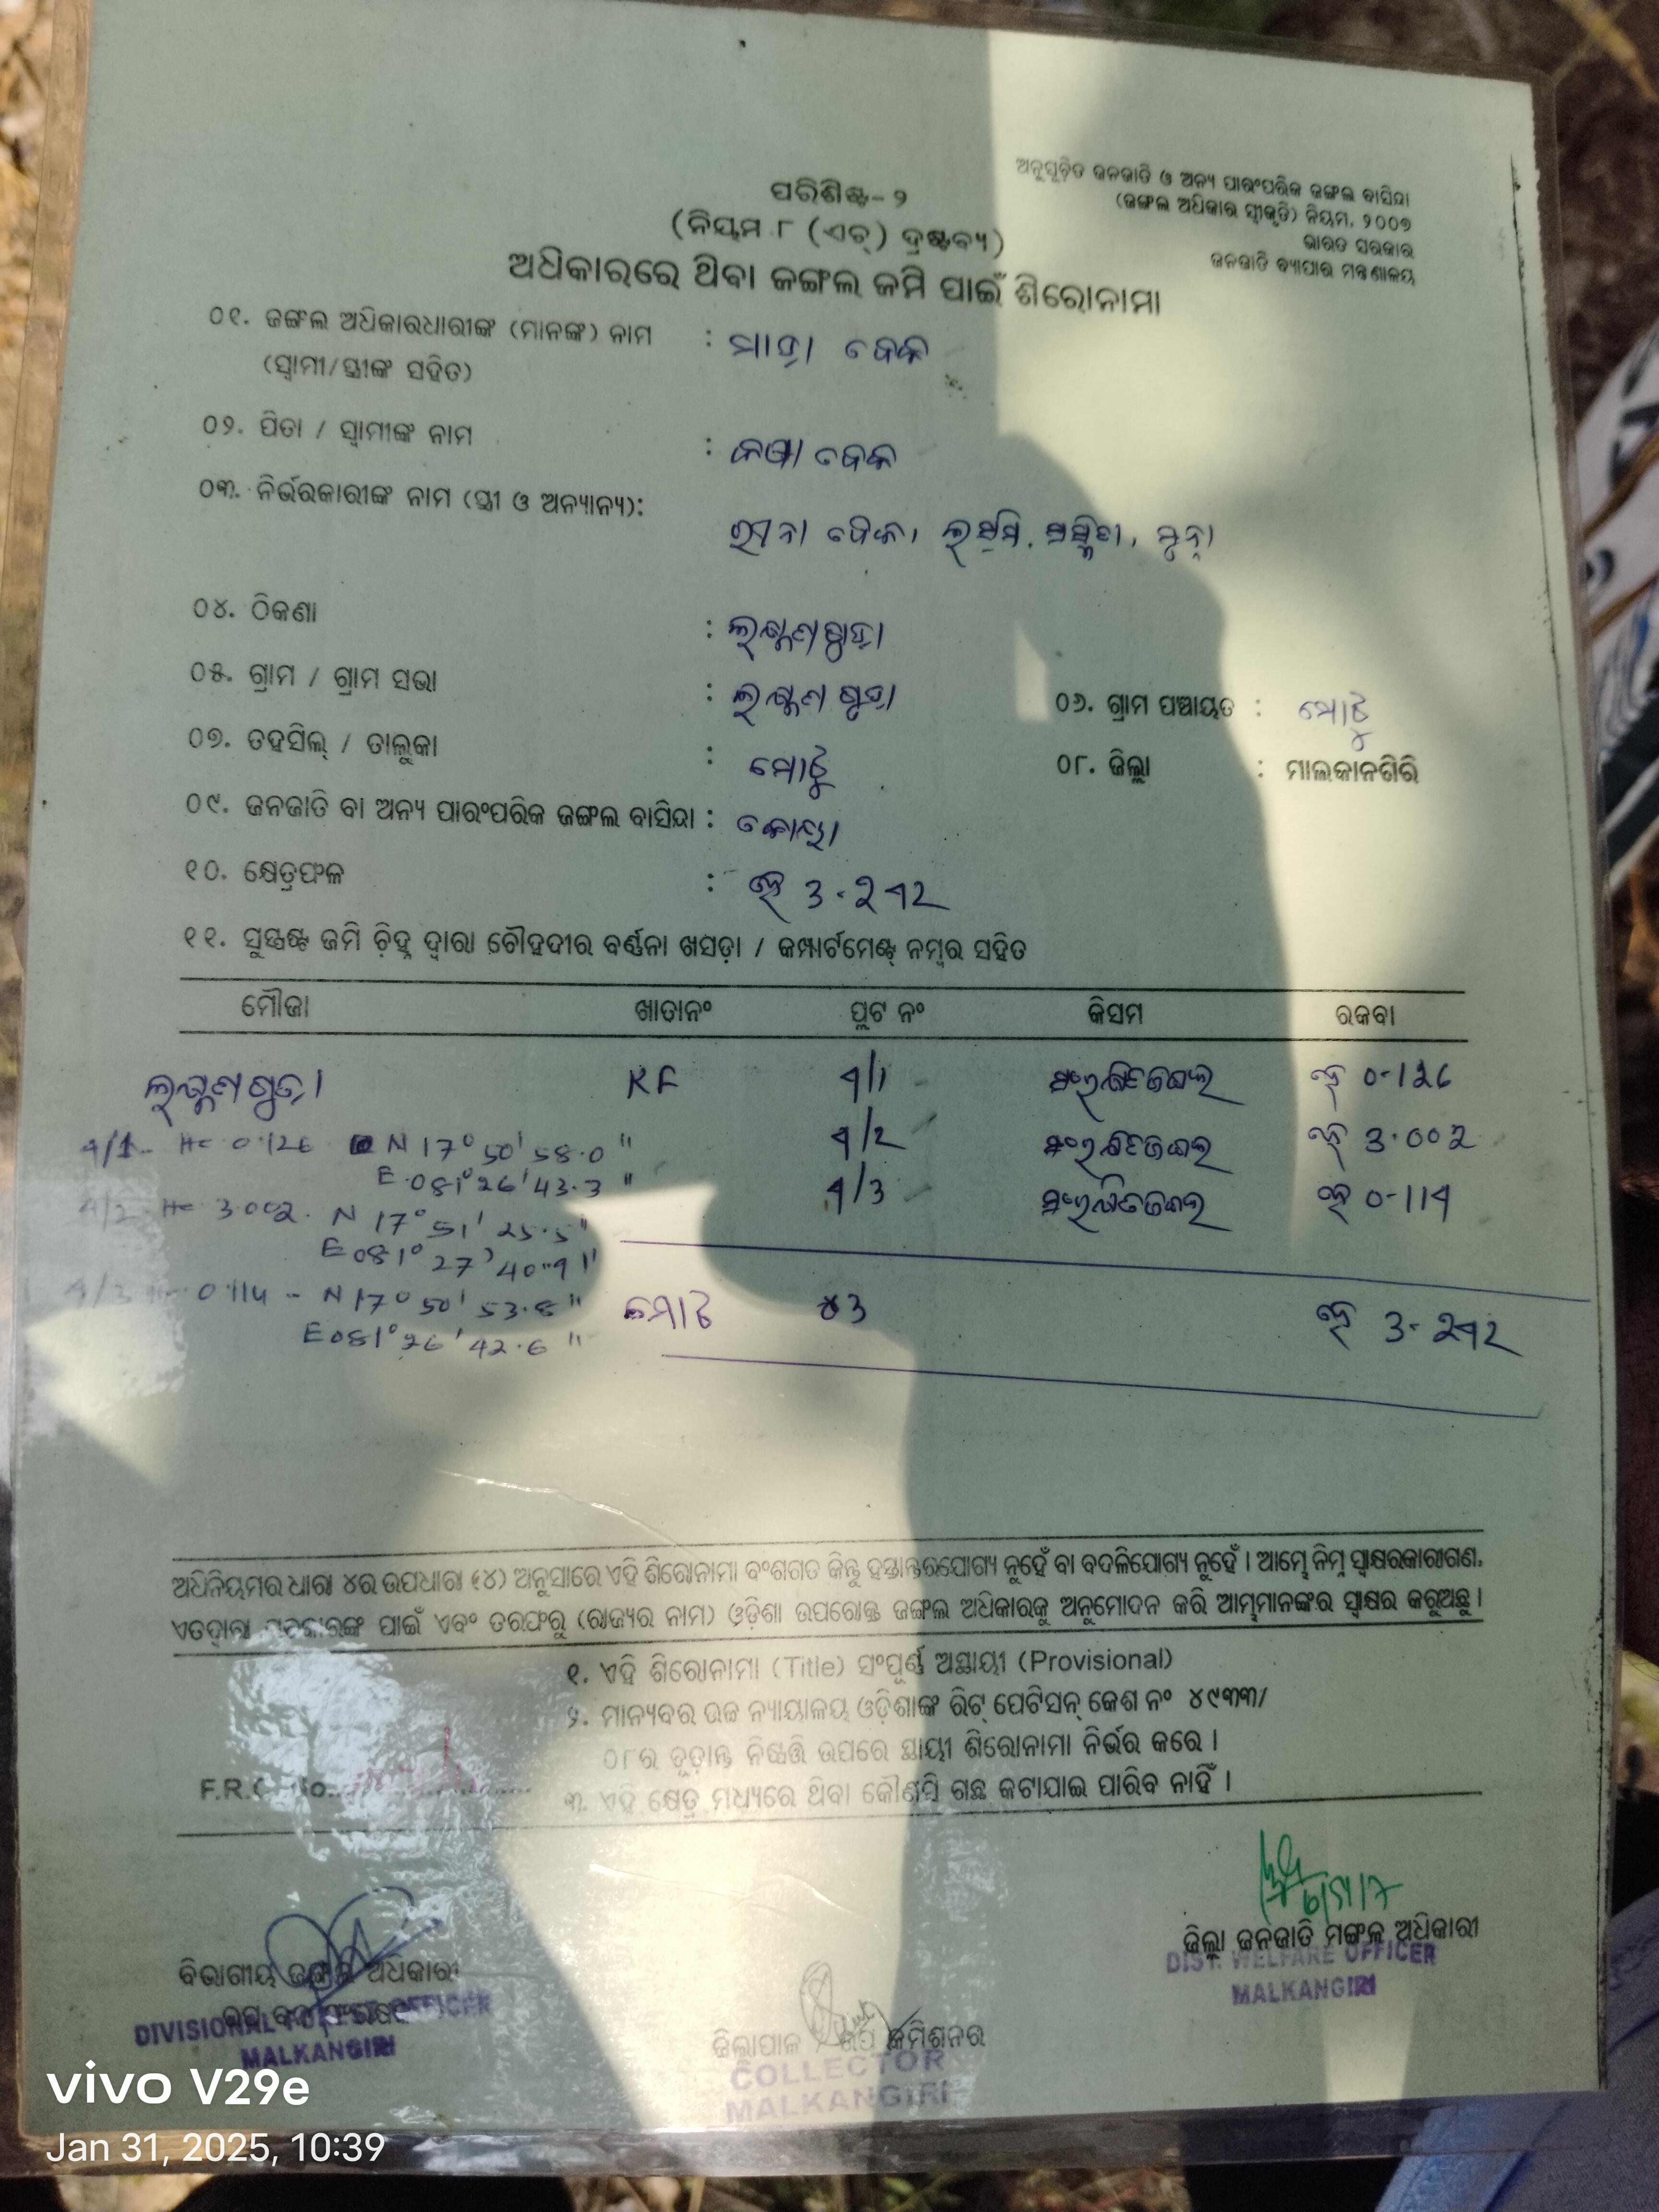 ଅନୁସୂଚିତ ଜନଜାତି ଓ ଅନ୍ୟ ପାରଂପରିକ ଜଙ୍ଗଲ ବାସିନ୍ଦା
(ଜଙ୍ଗଲ ଅଧିକାର ସ୍ୱୀକୃତି) ନିୟମ, ୨୦୦୭
ଭାରତ ସରକାର
ଜନଜାତି ବ୍ୟାପାର ମନ୍ତ୍ରଣାଳୟ
ପରିଶିଷ୍ଟ- ୨
(ନିୟମ ୮ (ଏଚ୍) ଦ୍ରଷ୍ଟବ୍ୟ)
ଅଧିକାରରେ ଥିବା ଜଙ୍ଗଲ ଜମି ପାଇଁ ଶିରୋନାମା
୦୧. ଜଙ୍ଗଲ ଅଧିକାରଧାରୀଙ୍କ (ମାନଙ୍କ) ନାମ :
(ସ୍ୱାମୀ/ସ୍ତ୍ରୀଙ୍କ ସହିତ)
୦୨. ପିତା / ସ୍ୱାମୀଙ୍କ ନାମ :
୦୩. ନିର୍ଭରକାରୀଙ୍କ ନାମ (ସ୍ତ୍ରୀ ଓ ଅନ୍ୟାନ୍ୟ):
୦୪. ଠିକଣା :
୦୫. ଗ୍ରାମ / ଗ୍ରାମ ସଭା :
୦୬. ଗ୍ରାମ ପଞ୍ଚାୟତ : ମୋଟୁ
୦୭. ତହସିଲ୍ / ତାଲୁକା : ମୋଟୁ
୦୮. ଜିଲ୍ଲା : ମାଲକାନଗିରି
୦୯. ଜନଜାତି ବା ଅନ୍ୟ ପାରଂପରିକ ଜଙ୍ଗଲ ବାସିନ୍ଦା : କୋୟା
୧୦. କ୍ଷେତ୍ରଫଳ : ହେ 3.242
୧୧. ସୁସ୍ପଷ୍ଟ ଜମି ଚିହ୍ନ ଦ୍ୱାରା ଚୌହଦୀର ବର୍ଣ୍ଣନା ଖସଡ଼ା / କମ୍ପାର୍ଟମେଣ୍ଟ ନମ୍ବର ସହିତ
ମୌଜା ଖାତାନଂ ପ୍ଲଟ ନଂ କିସମ ରକବା
RF 4/1 ସଂରକ୍ଷିତ ଜଙ୍ଗଲ ହେ 0-126
4/1- Hc 0.126 N 17° 50' 58.0"
4/2 ସଂରକ୍ଷିତ ଜଙ୍ଗଲ ହେ 3.002
E 081° 26' 43.3"
4/3 ସଂରକ୍ଷିତ ଜଙ୍ଗଲ ହେ 0-114
4/2- Hc 3.002. N 17° 51' 25.5"
E 081° 27' 40.9"
4/3 0.114 - N 17° 50' 53.8"
ମୋଟ 3 ହେ 3.242
E 081° 26' 42.6"
ଅଧିନିୟମର ଧାରା ୪ର ଉପଧାରା (୪) ଅନୁସାରେ ଏହି ଶିରୋନାମା ବଂଶଗତ କିନ୍ତୁ ହସ୍ତାନ୍ତରଯୋଗ୍ୟ ନୁହେଁ ବା ବଦଳିଯୋଗ୍ୟ ନୁହେଁ । ଆମ୍ଭେ ନିମ୍ନ ସ୍ୱାକ୍ଷରକାରୀଗଣ,
ଏତଦ୍ୱାରା ସରକାରଙ୍କ ପାଇଁ ଏବଂ ତରଫରୁ (ରାଜ୍ୟର ନାମ) ଓଡ଼ିଶା ଉପରୋକ୍ତ ଜଙ୍ଗଲ ଅଧିକାରକୁ ଅନୁମୋଦନ କରି ଆମ୍ଭମାନଙ୍କର ସ୍ୱାକ୍ଷର କରୁଅଛୁ ।
୧. ଏହି ଶିରୋନାମା (Title) ସଂପୂର୍ଣ୍ଣ ଅସ୍ଥାୟୀ (Provisional)
୨. ମାନ୍ୟବର ଉଚ୍ଚ ନ୍ୟାୟାଳୟ ଓଡ଼ିଶାଙ୍କ ରିଟ୍ ପେଟିସନ୍ କେଶ ନଂ ୪୯୩୩/
୦୮ର ଚୂଡ଼ାନ୍ତ ନିଷ୍ପତ୍ତି ଉପରେ ସ୍ଥାୟୀ ଶିରୋନାମା ନିର୍ଭର କରେ ।
F.R.C. No.
୩. ଏହି କ୍ଷେତ୍ର ମଧ୍ୟରେ ଥିବା କୌଣସି ଗଛ କଟାଯାଇ ପାରିବ ନାହିଁ ।
ଜିଲ୍ଲା ଜନଜାତି ମଙ୍ଗଳ ଅଧିକାରୀ
DIST. WELFARE OFFICER
MALKANGIRI
ବିଭାଗୀୟ ଜଙ୍ଗଲ ଅଧିକାରୀ
DIVISIONAL FOREST OFFICER
MALKANGIRI
ଜିଲ୍ଲାପାଳ / ଉପ କମିଶନର
COLLECTOR
MALKANGIRI
vivo V29e
Jan 31, 2025, 10:39